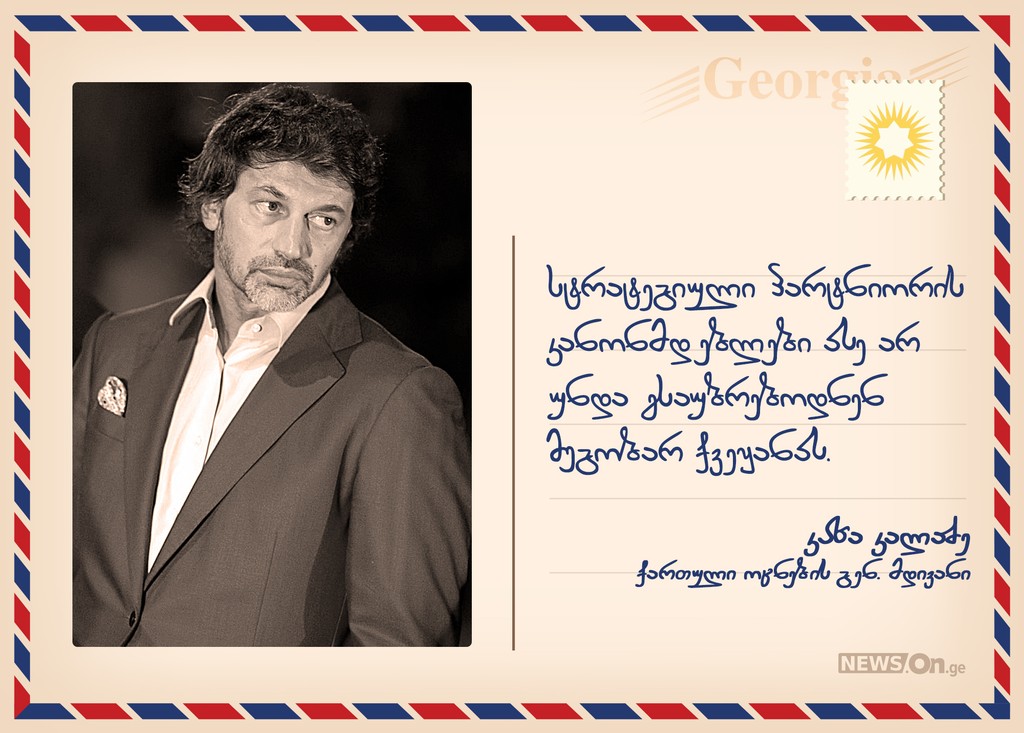 Georgia
სტრატეგიული პარტნიორის
კანონმდებლები ასე არ
უნდა ესაუბრებოდნენ
მეგობარ ქვეყანას.
კახა კალაძე
ქართული ოცნების გენ. მდივანი
NEWS.On.ge